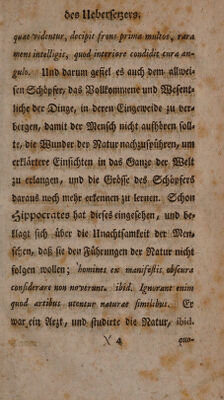 des Uebersetzers.
quae videntur, decipit frons prima multos, rara
mens intelligit, quod interiore condidit cura an-
gulo. Und darum gefiel es auch dem allwei-
sen Schöpfer, das Vollkommene und Wesent-
liche der Dinge, in deren Eingeweide zu ver-
bergen, damit der Mensch nicht aufhören soll-
te, die Wunder der Natur nachzuspühren, um
erklärtere Einsichten in das Ganze der Welt
zu erlangen, und die Grösse des Schöpfers
daraus noch mehr erkennen zu lernen. Schon
Hippocrates hat dieses eingesehen, und be-
klagt sich über die Unachtsamkeit der Men-
schen, daß sie den Führungen der Natur nicht
folgen wollen; homines ex manifestis obscura
considerare non noverunt. ibid. Ignorant enim
quod artibus utentur naturae similibus. Er
war ein Arzt, und studirte die Natur, ibid.
X 4
quo-